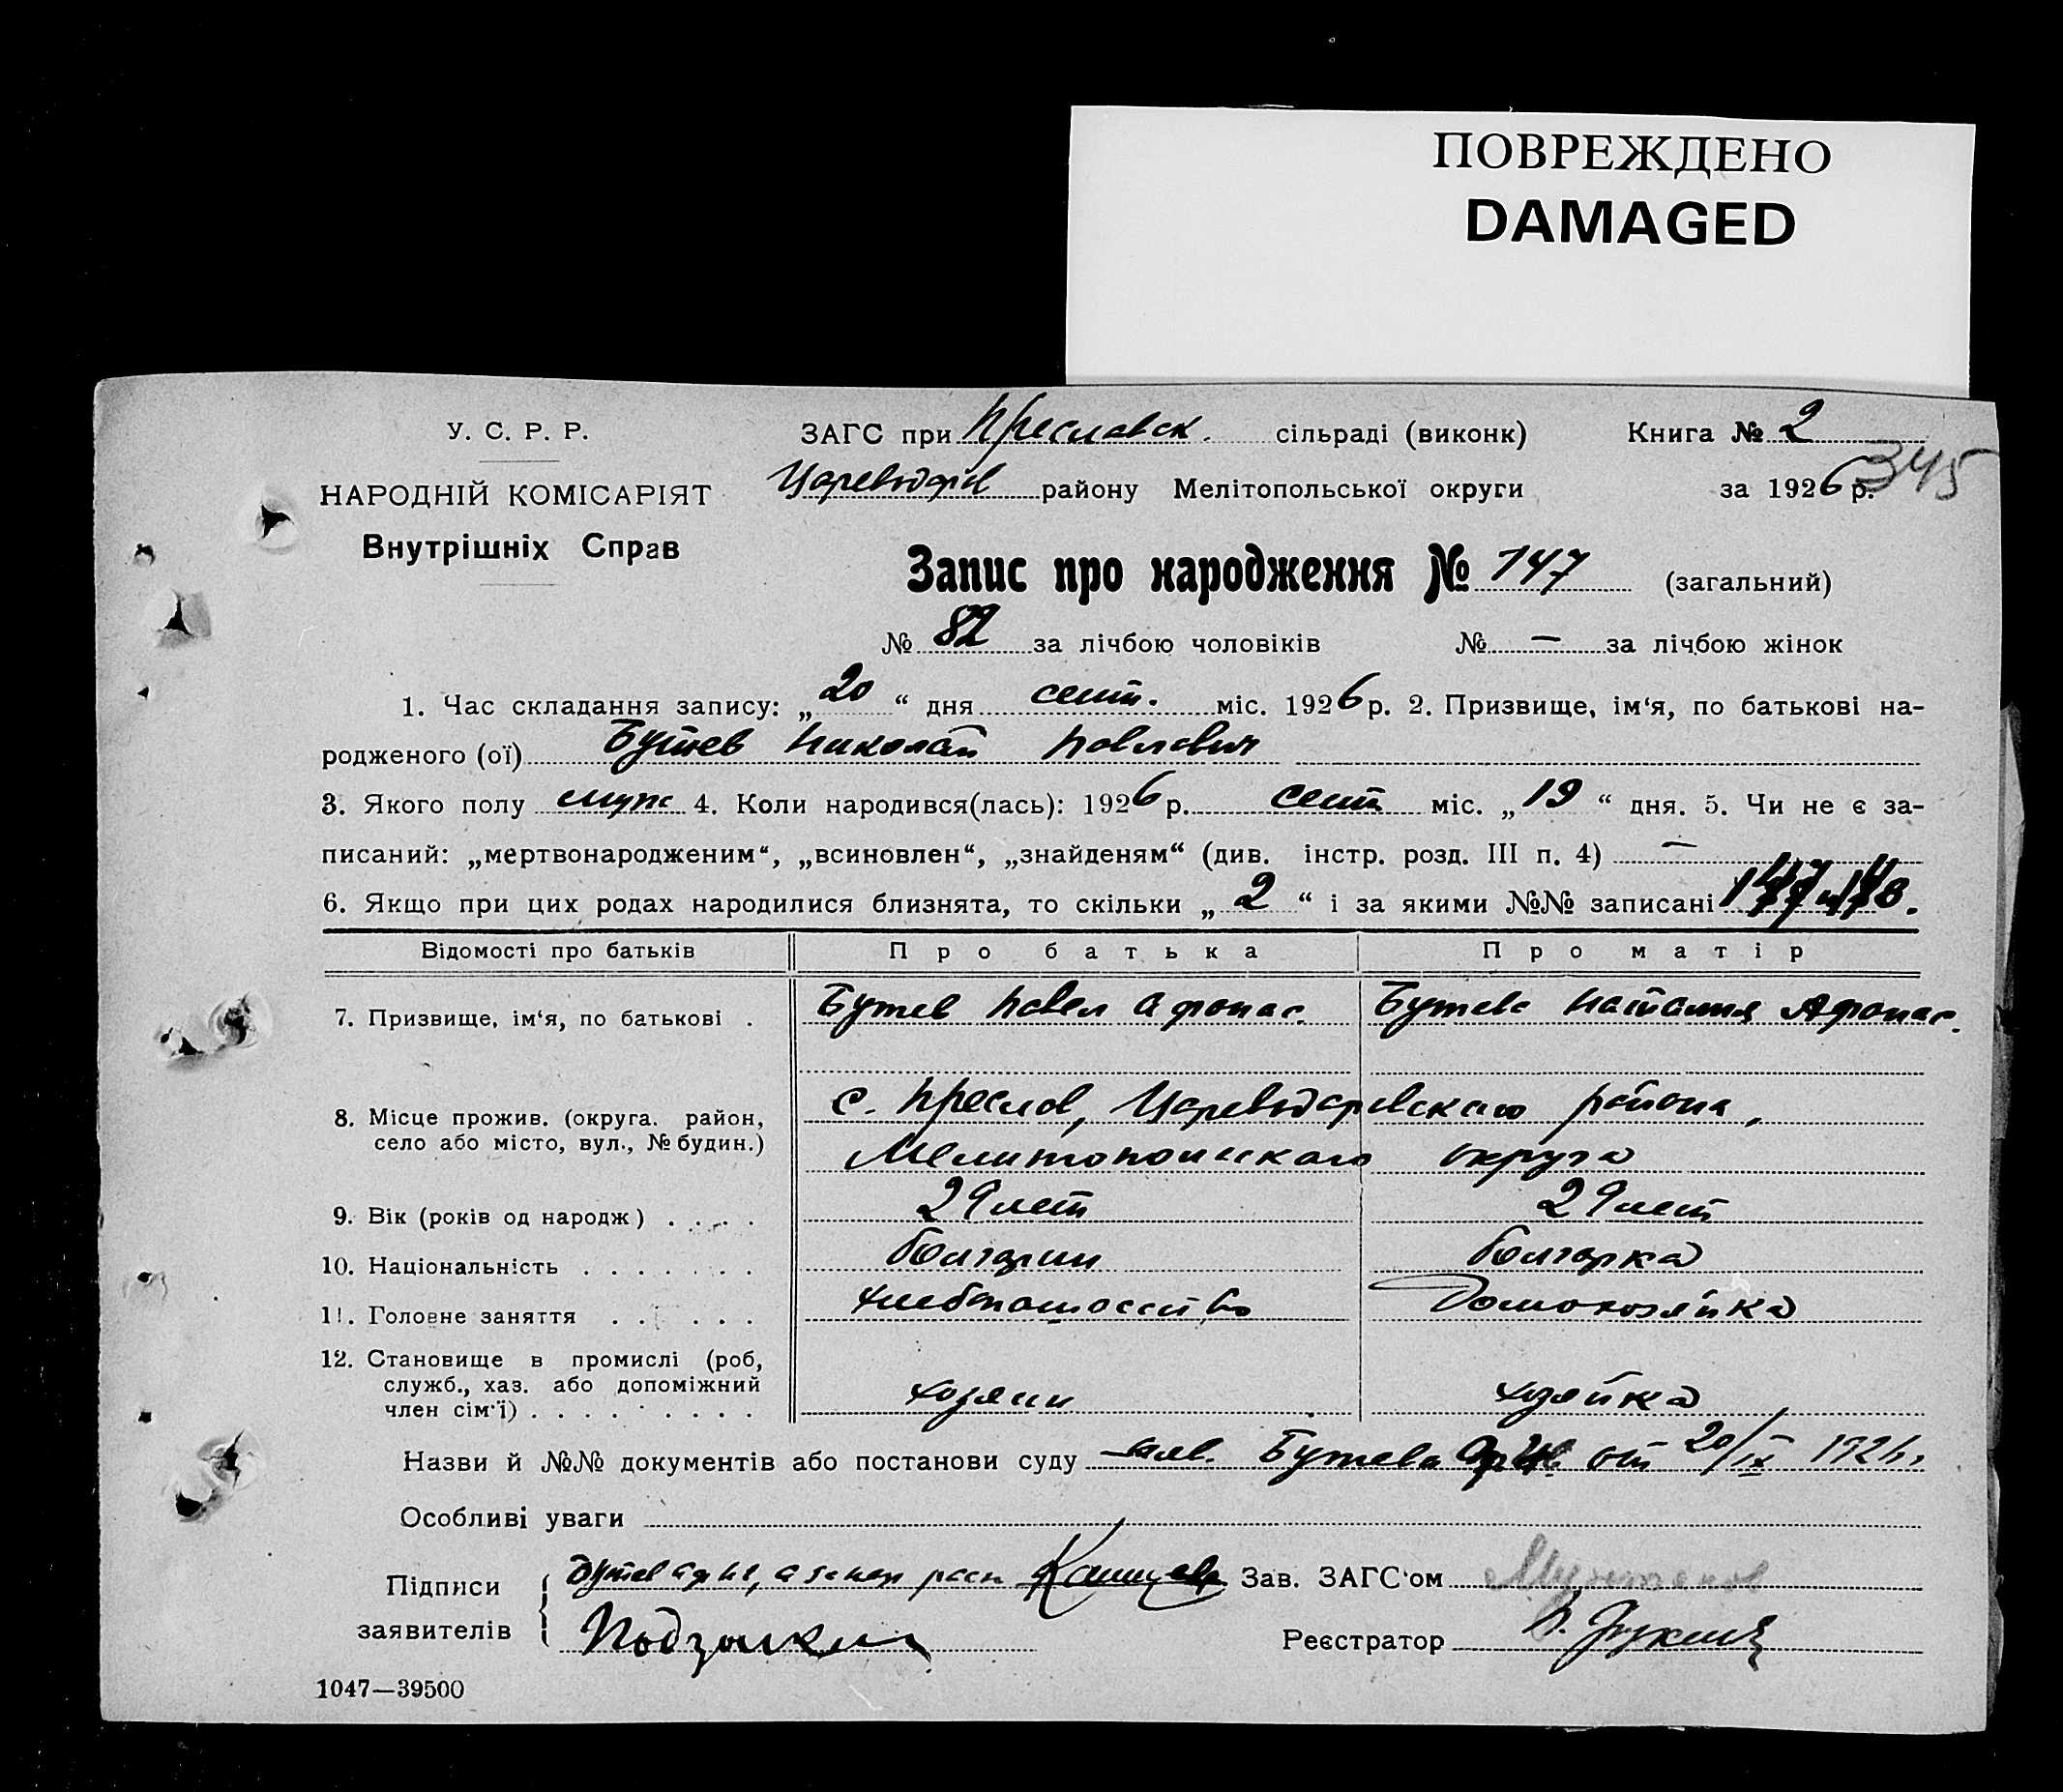 ПОВРЕЖДЕНО
DAMAGED
У. С. Р. Р.
НАРОДНІЙ КОМІСАРІЯТ
Внутрішніх Справ
ЗАГС при Преславск. сільраді (виконк)
Цареводар района Мелітопольської округи
Книга № 2
за 1926 р.
345
Запис про народження № 147 (загальний)
№ 82 за лічбою чоловіків № — за лічбою жінок
1. Час складання запису: „20“ дня сент. міс. 1926 р. 2. Призвище, ім‘я, по батькові на-
родженого (ої) Бутев Николай Павлович
3. Якого полу муж 4. Коли народився(лась): 1926 р. сент міс. „19“ дня. 5. Чи не є за-
писаний: „мертвонародженим“, „всиновлен“, „знайденям“ (див. інстр. розд. III п. 4) —
6. Якщо при цих родах народилися близнята, то скільки „2“ і за якими №№ записані
Відомості про батьків Про батька Про матір
7. Призвище, ім‘я, по батькові . Бутев Павел Афонас. Бутева Наталия Афонас.
8. Місце прожив. (округа. район, село або місто, вул., № будин.) с. Преслав, Цареводаровского района,
Мелитопольского округа
9. Вік (років од народж) . . . . 29 лет 29 лет
10. Національність . . . . . . . болгарин болгарка
11. Головне заняття . . . . . . хлебопашество Домохозяйка
12. Становище в промислі (роб,
служб., хаз. або допоміжний
член сім‘ї) . . . . . . . . . хозяин хозяйка
Назви й №№ документів або постанови суду заяв. Бутева от 20/IX 1926 г.
Особливі уваги
Підписи
заявителів
Бутев
Зав. ЗАГС‘ом
Реєстратор
1047—39500